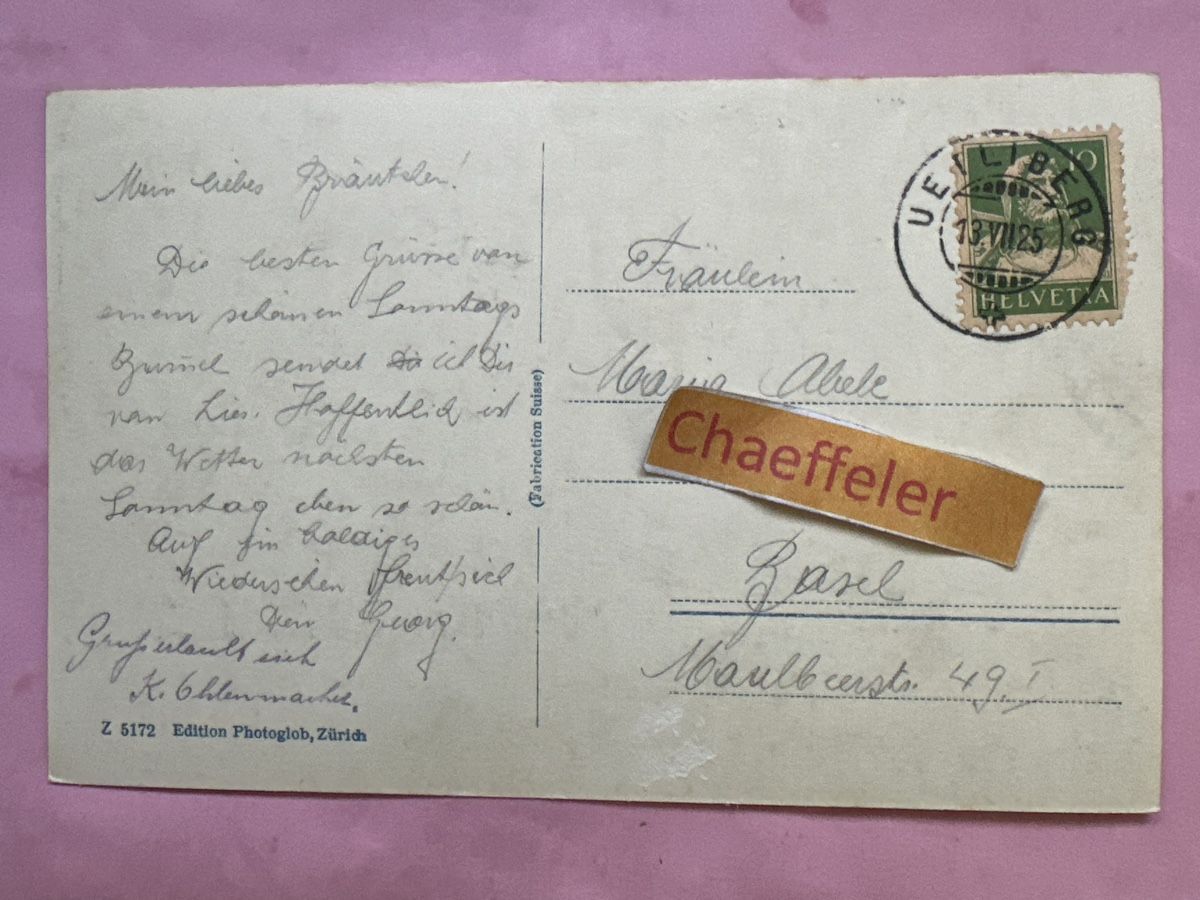 Mein liebes Bräutchen!
Die besten Grüsse von
einem schönen Sonntags
Bummel sendet ich Dir
von hier. Hoffentlich ist
das Wetter nächsten
Sonntag eben so schön.
Auf ein baldiges
Wiedersehen freut sich
Dein Georg.
Gruss erlaubt sich
K.
Z 5172 Edition Photoglob, Zürich
(Fabrication Suisse)
UETLIBERG
13.VII.25
10
HELVETIA
Fräulein
Maria Abele
Chaeffeler
Basel
Maulbeerstr. 49. I